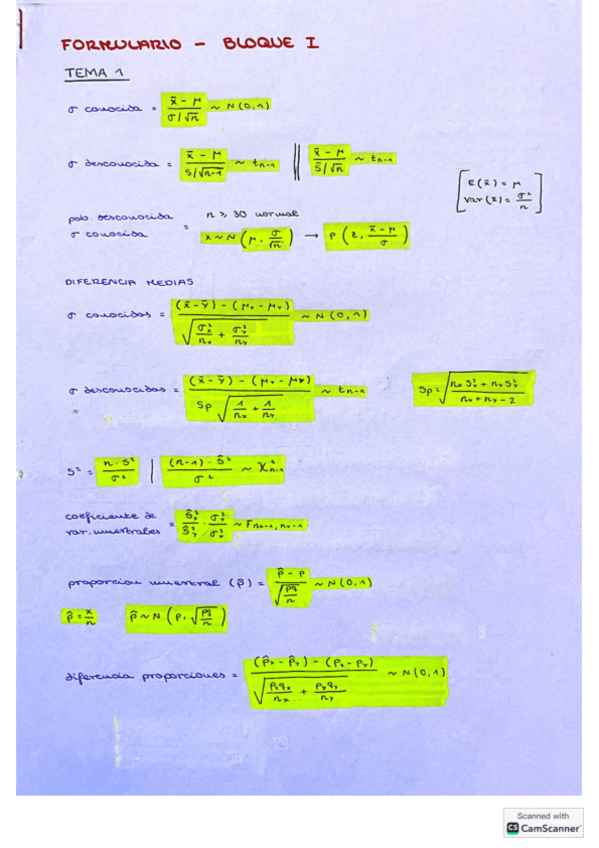 FORMULARIO - BLOQUE I
TEMA 1
σ conocida = (x̄ - μ) / (σ/√n) ~ N(0,1)
σ desconocida = (x̄ - μ) / (s/√n-1) ~ tn-1 || (x̄ - μ) / (ŝ/√n) ~ tn-1
[E(x̄) = μ
Var(x̄) = σ²/n]
pob. desconocida
σ conocida
= n ≥ 30 normal
x ~ N(μ, σ/√n) → P(z, (x̄ - μ)/σ)
DIFERENCIA MEDIAS
σ conocidas = ((x̄ - ȳ) - (μx - μy)) / √(σx²/nx + σy²/ny) ~ N(0,1)
σ desconocidas = ((x̄ - ȳ) - (μx - μy)) / (Sp √(1/nx + 1/ny)) ~ tn-1
Sp = √((nx Sx² + ny Sy²) / (nx + ny - 2))
S² = n·S²/σ² | (n-1)·Ŝ²/σ² ~ χ²n-1
coeficiente de
var. muestrales = Ŝx²/Ŝy² · σy²/σx² ~ Fnx-1, ny-1
proporcion muestral (p̂) = (p̂ - p) / √(pq/n) ~ N(0,1)
p̂ = x/n p̂ ~ N(p, √(pq/n))
diferencia proporciones = ((p̂x - p̂y) - (px - py)) / √(pxqx/nx + pyqy/ny) ~ N(0,1)
Scanned with
CS CamScanner